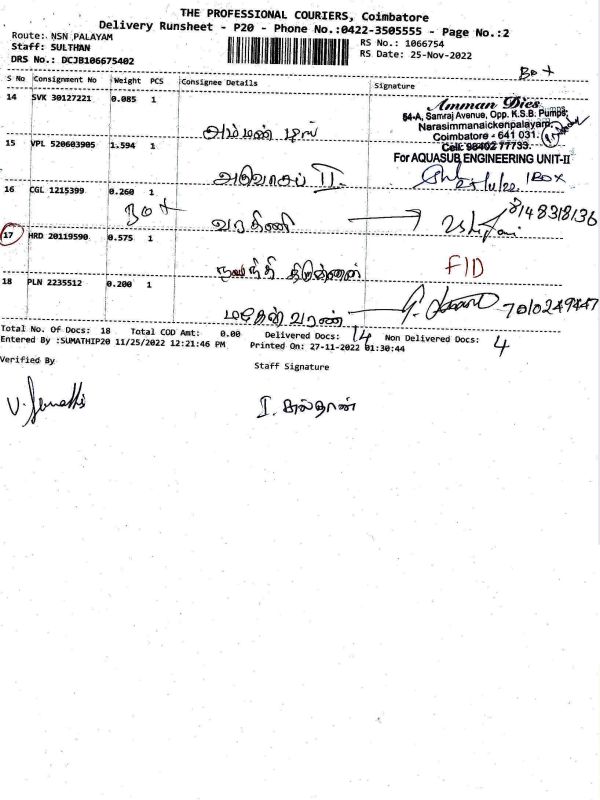 THE PROFESSIONAL COURIERS, Coimbatore
Delivery Runsheet - P20 - Phone No.:0422-3505555 - Page No.:2
Route: NSN PALAYAM
RS No.: 1066754
Staff: SULTHAN
RS Date: 25-Nov-2022
DRS No.: DCJB106675402
Box
S No Consignment No Weight PCS Consignee Details Signature
14 SVK 30127221 0.085 1
அம்மன் டைஸ்
Amman Dies
54-A, Samraj Avenue, Opp. K.S.B. Pumps,
Narasimmanaickenpalayam,
Coimbatore - 641 031.
Cell: 98402 77733.
15 VPL 520603905 1.594 1
II
For AQUASUB ENGINEERING UNIT-II
25/11/22 1BOX
16 CGL 1215399 0.260 1
Box
வரதினி
8148318136
17 HRD 20119590 0.575 1
F/D
18 PLN 2235512 0.200 1
7010249447
Total No. Of Docs: 18 Total COD Amt: 0.00 Delivered Docs: 14 Non Delivered Docs: 4
Entered By :SUMATHIP20 11/25/2022 12:21:46 PM Printed On: 27-11-2022 01:30:44
Verified By
Staff Signature
V. Sumathi
I. சுல்தான்